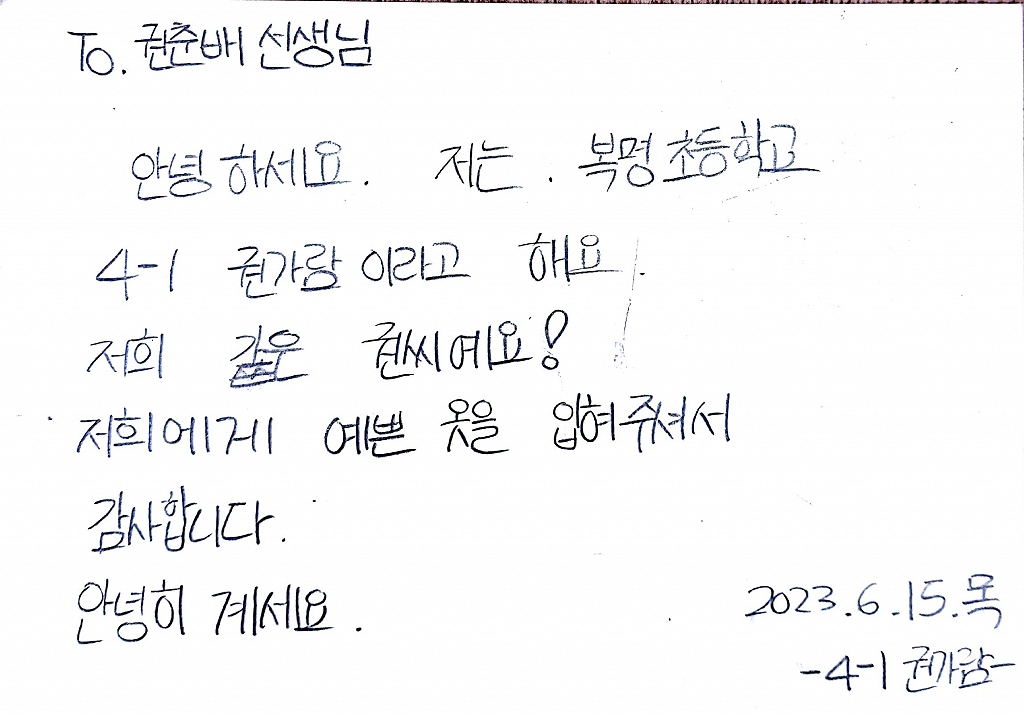 To. 권춘배 선생님
안녕하세요. 저는. 복명초등학교
4-1 권가람이라고 해요.
저희 같은 권씨예요!
저희에게 예쁜 옷을 입혀주셔서
감사합니다.
안녕히 계세요.
2023.6.15.목
-4-1 권가람-